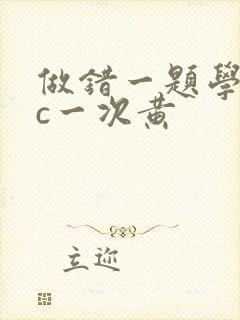 做錯一題學
c一次黄
立迩